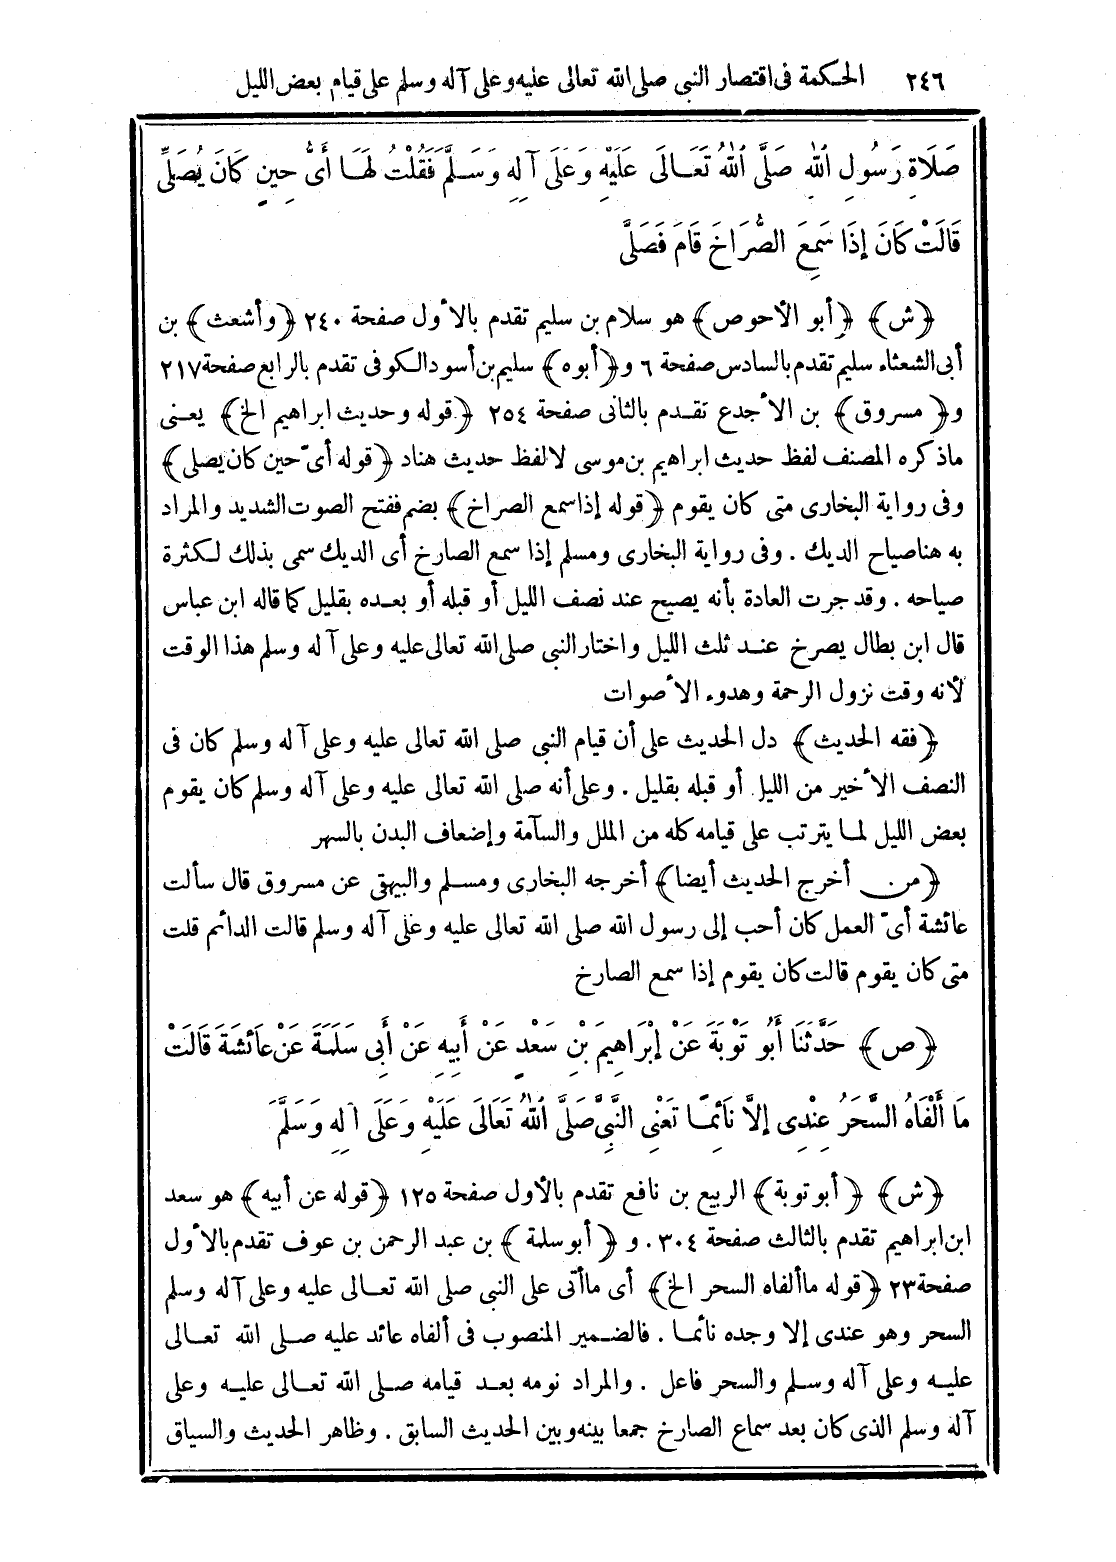 ٢٤٦ الحكمة فى اقتصار النبى صلى الله تعالى عليه وعلى آله وسلم على قيام بعض الليل
صَلَاةِ رَسُولِ اللهِ صَلَّى اللهُ تَعَالَى عَلَيْهِ وَعَلَى آلِهِ وَسَلَّمَ فَقُلْتُ لَهَا أَىُّ حِينٍ كَانَ يُصَلِّى
قَالَتْ كَانَ إِذَا سَمِعَ الصُّرَاخَ قَامَ فَصَلَّى
﴿ش﴾ ﴿أبو الأحوص﴾ هو سلام بن سليم تقدم بالأول صفحة ٢٤٠ ﴿وأشعث﴾ بن
أبى الشعثاء سليم تقدم بالسادس صفحة ٦ و﴿أبوه﴾ سليم بن أسود الكوفى تقدم بالرابع صفحة ٢١٧
و﴿مسروق﴾ بن الأجدع تقدم بالثانى صفحة ٢٥٤ ﴿قوله وحديث ابراهيم الخ﴾ يعنى
ماذكره المصنف لفظ حديث ابراهيم بن موسى لالفظ حديث هناد ﴿قوله أىّ حين كان يصلى﴾
وفى رواية البخارى متى كان يقوم ﴿قوله إذا سمع الصراخ﴾ بضم ففتح الصوت الشديد والمراد
به هنا صياح الديك . وفى رواية البخارى ومسلم إذا سمع الصارخ أى الديك سمى بذلك لكثرة
صياحه . وقد جرت العادة بأنه يصيح عند نصف الليل أو قبله أو بعده بقليل كما قاله ابن عباس
قال ابن بطال يصرخ عند ثلث الليل واختار النبى صلى الله تعالى عليه وعلى آله وسلم هذا الوقت
لأنه وقت نزول الرحمة وهدوء الأصوات
﴿فقه الحديث﴾ دل الحديث على أن قيام النبى صلى الله تعالى عليه وعلى آله وسلم كان فى
النصف الأخير من الليل أو قبله بقليل . وعلى أنه صلى الله تعالى عليه وعلى آله وسلم كان يقوم
بعض الليل لما يترتب على قيامه كله من الملل والسآمة وإضعاف البدن بالسهر
﴿من أخرج الحديث أيضا﴾ أخرجه البخارى ومسلم والبيهقى عن مسروق قال سألت
عائشة أىّ العمل كان أحب إلى رسول الله صلى الله تعالى عليه وعلى آله وسلم قالت الدائم قلت
متى كان يقوم قالت كان يقوم إذا سمع الصارخ
﴿ص﴾ حَدَّثَنَا أَبُو تَوْبَةَ عَنْ إِبْرَاهِيمَ بْنِ سَعْدٍ عَنْ أَبِيهِ عَنْ أَبِى سَلَمَةَ عَنْ عَائِشَةَ قَالَتْ
مَا أَلْفَاهُ السَّحَرُ عِنْدِى إِلَّا نَائِمًا تَعْنِى النَّبِىَّ صَلَّى اللهُ تَعَالَى عَلَيْهِ وَعَلَى آلِهِ وَسَلَّمَ
﴿ش﴾ ﴿أبو توبة﴾ الربيع بن نافع تقدم بالأول صفحة ١٢٥ ﴿قوله عن أبيه﴾ هو سعد
ابن ابراهيم تقدم بالثالث صفحة ٣٠٤. و ﴿أبو سلمة﴾ بن عبد الرحمن بن عوف تقدم بالأول
صفحة ٢٣ ﴿قوله ما ألفاه السحر الخ﴾ أى ما أتى على النبى صلى الله تعالى عليه وعلى آله وسلم
السحر وهو عندى إلا وجده نائما . فالضمير المنصوب فى ألفاه عائد عليه صلى الله تعالى
عليه وعلى آله وسلم والسحر فاعل . والمراد نومه بعد قيامه صلى الله تعالى عليه وعلى
آله وسلم الذى كان بعد سماع الصارخ جمعا بينه وبين الحديث السابق . وظاهر الحديث والسياق